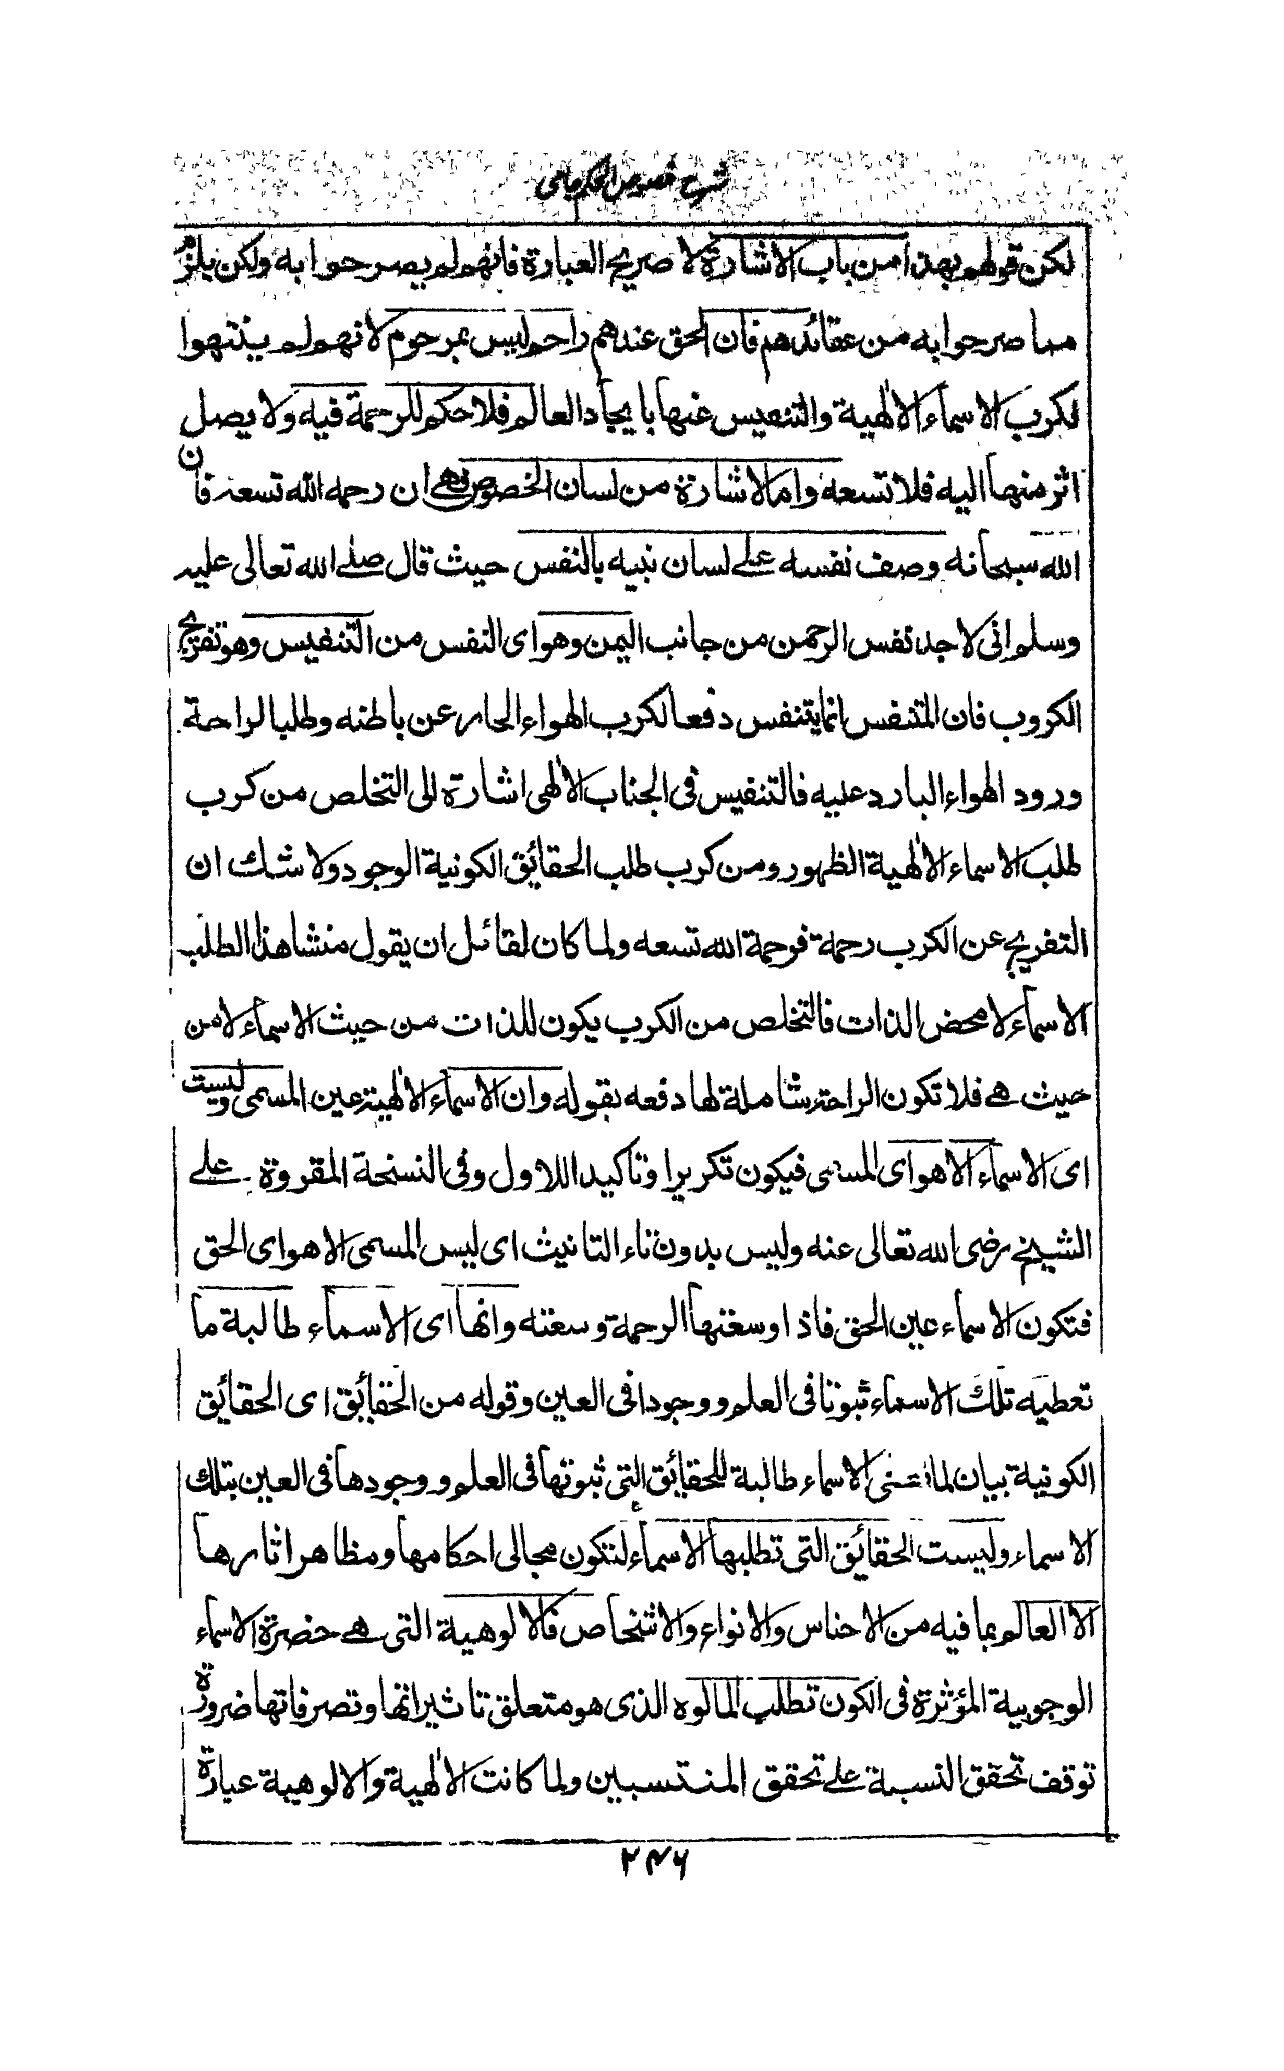 شرح فصوص الحكم جامى
لكن قولهم بهذا من باب الاشارة لا صريح العبارة فانهم لم يصرحوا به ولكن يلزم
مما صرحوا به من عقائدهم فان الحق عندهم راحم ليس بمرحوم لانهم لم ينتهوا
لكرب الاسماء الالهية والتنفيس عنها بايجاد العالم فلا حكم للرحمة فيه ولا يصل
اثر منها اليه فلا تسعه واما الاشارة من لسان الخصوص فهى ان رحمه الله تسعه فان
الله سبحانه وصف نفسه على لسان نبيه بالنفس حيث قال صلے الله تعالى عليه
وسلم انى لاجد نفس الرحمن من جانب اليمن وهو اى النفس من التنفيس وهو تفريج
الكروب فان المتنفس انما يتنفس دفعا لكرب الهواء الحار عن باطنه وطلبا لراحة
ورود الهواء البارد عليه فالتنفيس فى الجناب الالهى اشارة الى التخلص من كرب
طلب الاسماء الالهية الظهور ومن كرب طلب الحقائق الكونية الوجود ولا شك ان
التفريج عن الكرب رحمة فرحمة الله تسعه ولما كان لقائل ان يقول منشا هذا الطلب
الاسماء لا محض الذات فالتخلص من الكرب يكون للذات من حيث الاسماء لا من
حيث هے فلا تكون الراحة شاملة لها دفعه بقوله وان الاسماء الالهية عين المسمى وليست
اى الاسماء الا هو اى المسمى فيكون تكريرا وتاكيدا للاول وفى النسخة المقروة علے
الشيخ رضى الله تعالى عنه وليس بدون تاء التانيث اى ليس المسمى الا هو اى الحق
فتكون الاسماء عين الحق فاذا وسعتها الرحمة وسعته وانها اى الاسماء طالبة ما
تعطيه تلك الاسماء ثبوتا فى العلم ووجودا فى العين وقوله من الحقائق اى الحقائق
الكونية بيان لما تعطى الاسماء طالبة للحقائق التى ثبوتها فى العلم ووجودها فى العين بتلك
الاسماء وليست الحقائق التى تطلبها الاسماء لتكون مجالى احكامها ومظاهر اثارها
الا العالم بما فيه من الاجناس والانواع والاشخاص فالالوهية التى هے حضرة الاسماء
الوجوبية المؤثرة فى الكون تطلب المالوه الذى هو متعلق تاثيراتها وتصرفاتها ضرورة
توقف تحقق النسبة علے تحقق المنتسبين ولما كانت الالهية والالوهية عبارة
۲۴۶